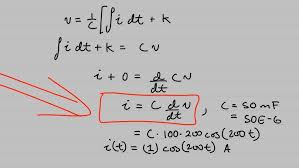 v = 1/C [∫ i dt + k
∫ i dt + k = C v
i + 0 = d/dt C v
i = C d/dt v , C = 50 mF
= 50E-6
= C · 100 · 200 cos(200t)
i(t) = (1) cos(200t) A